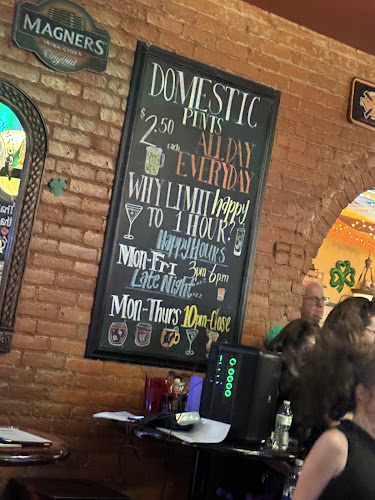 MAGNERS
IRISH CIDER
Original
DOMESTIC
PINTS
$2.50
each
ALL DAY
EVERYDAY
WHY LIMIT happy
TO 1 HOUR
Happy Hours
MON-FRI 3pm-6pm
Late Night
MON-THURS 10pm-Close